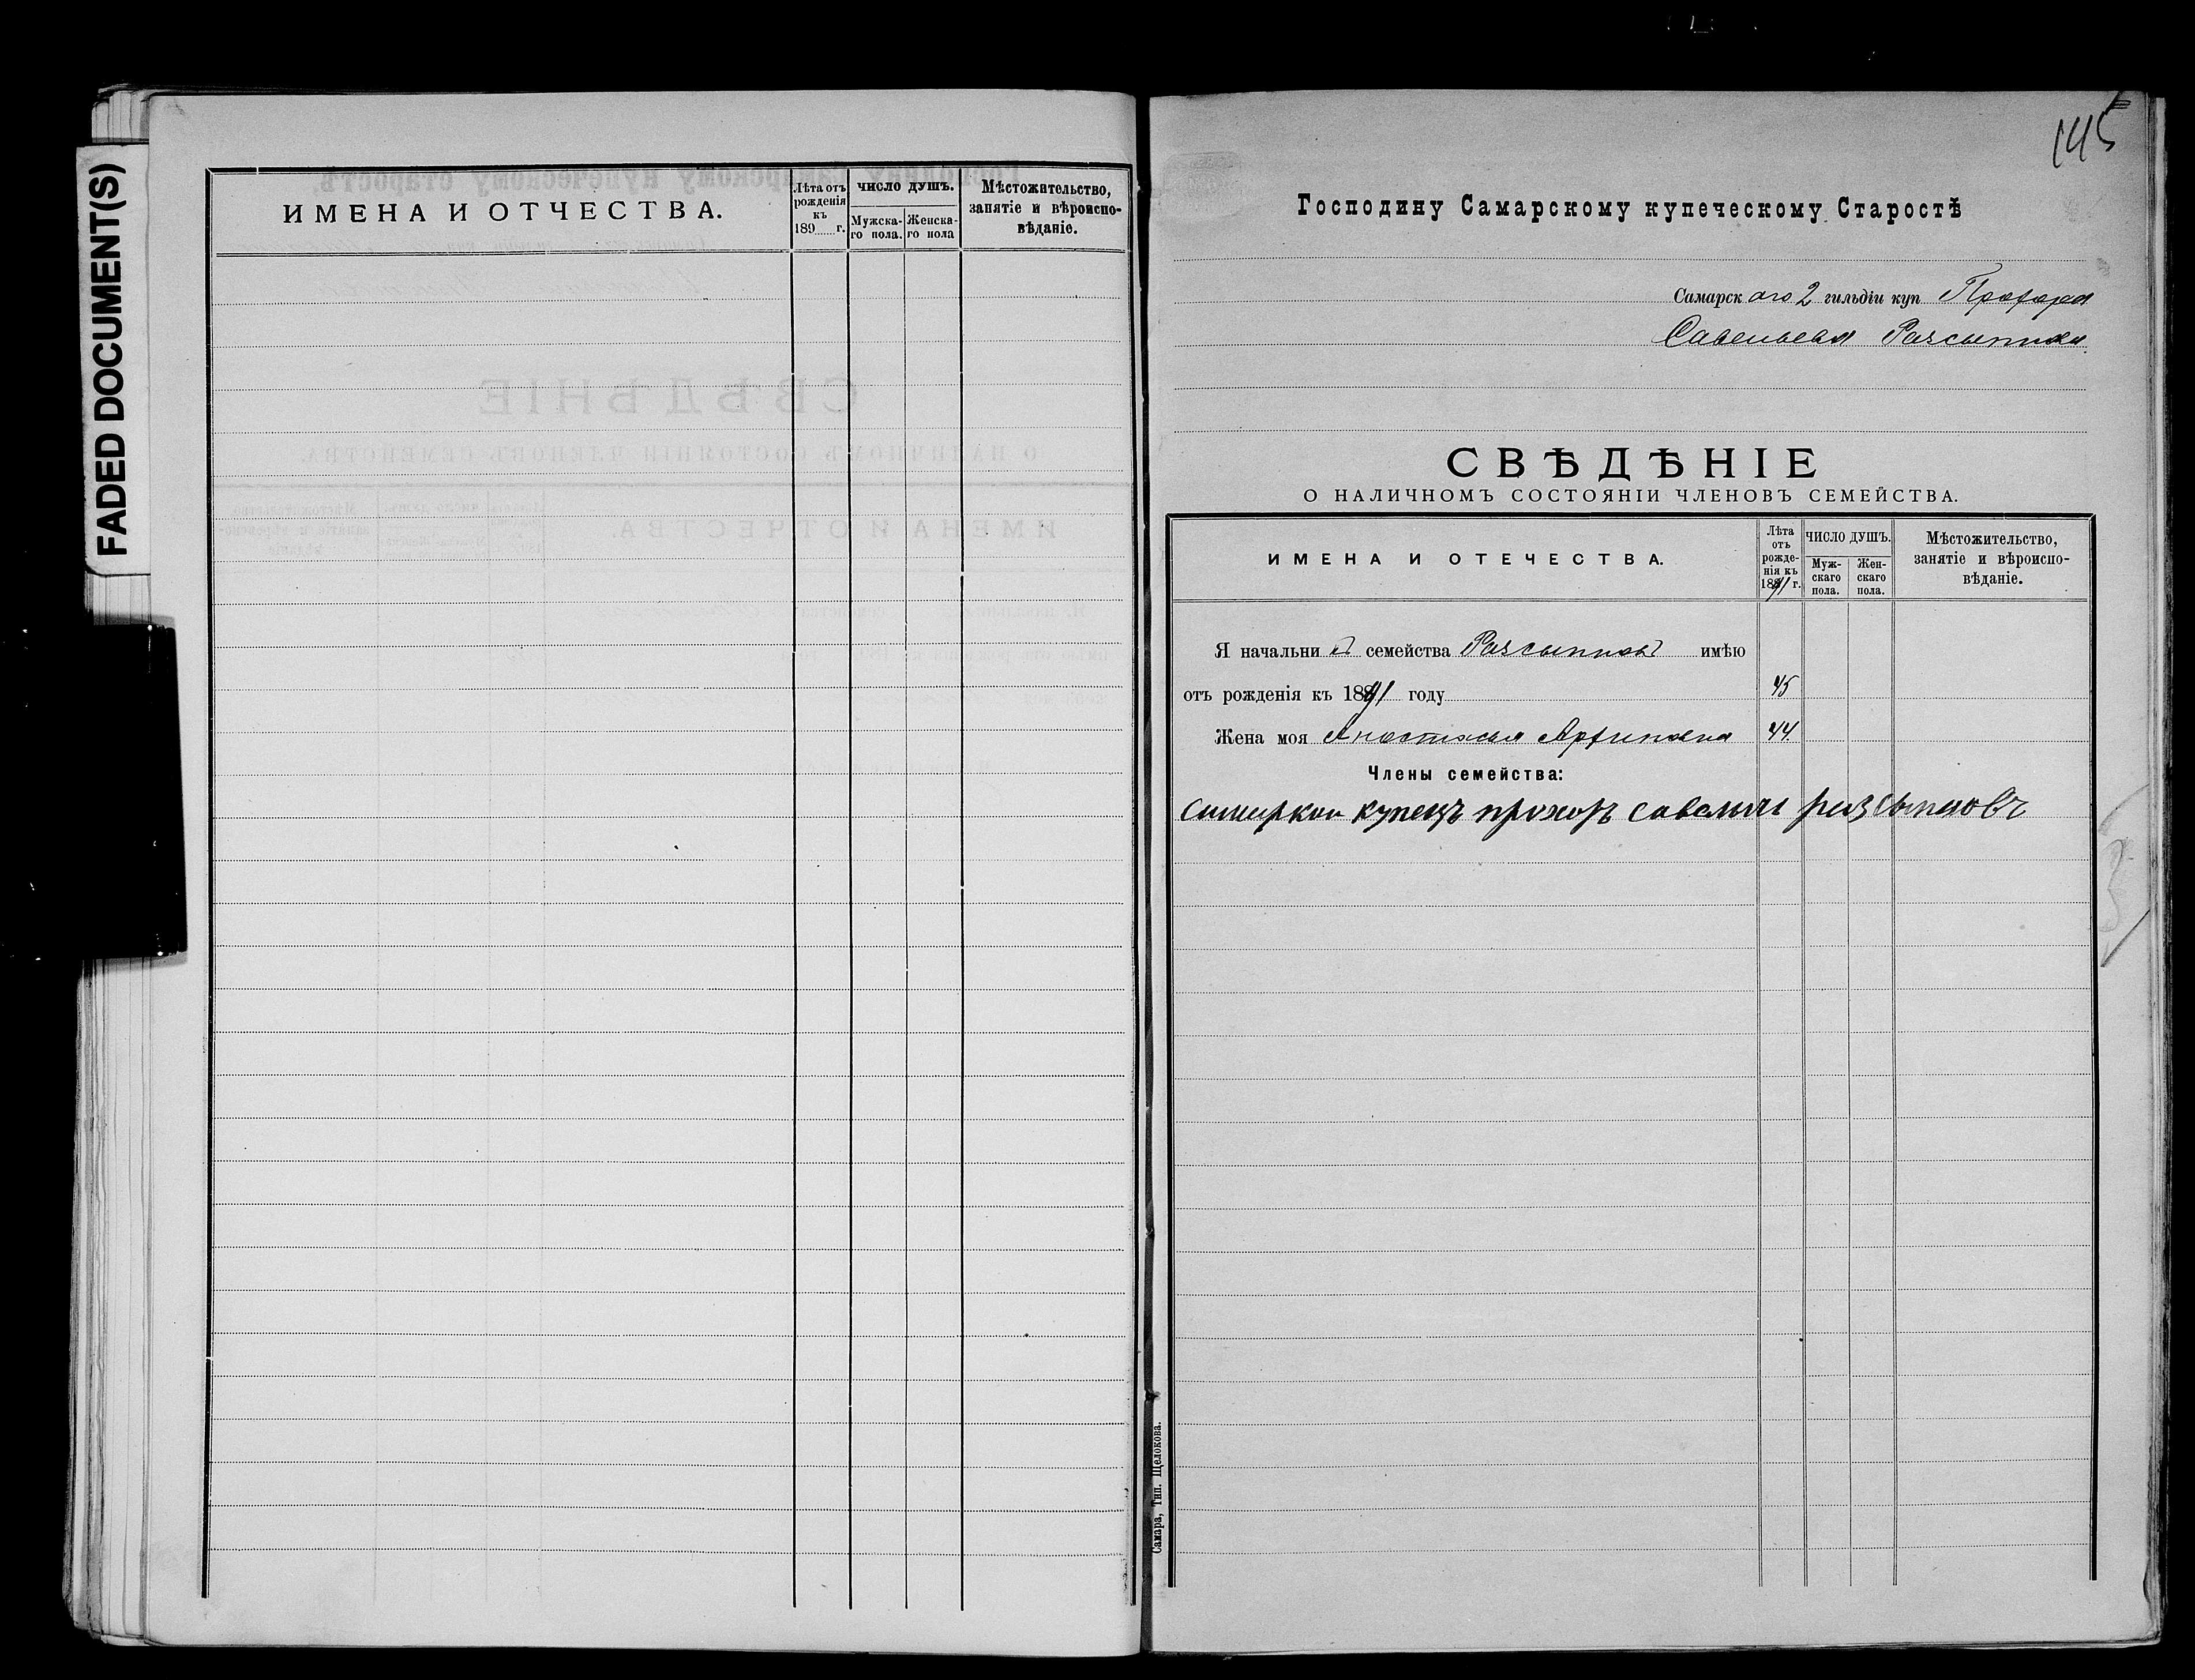 FADED DOCUMENT(S)
ИМЕНА И ОТЧЕСТВА.
Лѣта отъ рожденія къ 189 г.
ЧИСЛО ДУШЪ.
Мужска-го пола.
Женска-го пола
Мѣстожительство, занятіе и вѣроиспо-вѣданіе.
145
Господину Самарскому купеческому Старостѣ
Самарск ого 2 гильдіи куп Прохора
Савельева Разсыпнова
СВѢДѢНІЕ
О НАЛИЧНОМЪ СОСТОЯНІИ ЧЛЕНОВЪ СЕМЕЙСТВА.
ИМЕНА И ОТЕЧЕСТВА.
Лѣта отъ рожде-нія къ 1891 г.
ЧИСЛО ДУШЪ.
Муж-скаго пола.
Жен-скаго пола.
Мѣстожительство, занятіе и вѣроиспо-вѣданіе.
Я начальни къ семейства Разсыпновъ имѣю
отъ рожденія къ 1891 году 45
Жена моя Анастасья Архиповна 44
Члены семейства:
купецъ прохоръ разсыпновъ
Самара, Тип. Щелокова.